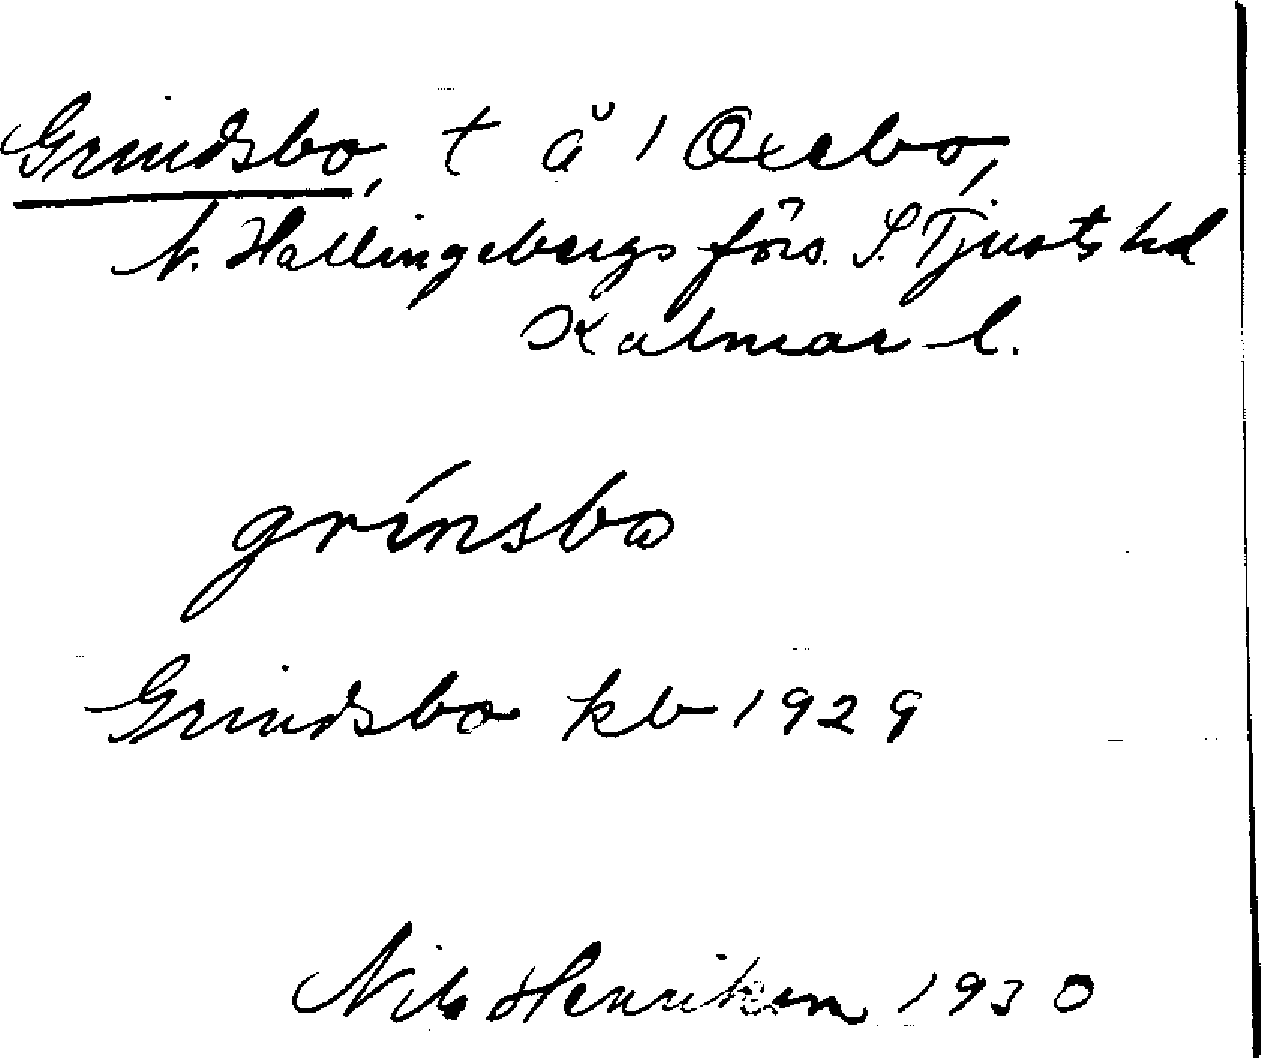 Grindsbo, t å 1 Oxebo,
V. Hallingebergs förs. S. Tjusts hd
Kalmar l.
grínsbo
Grindsbo kb 1929
Nils Henrikson 1930